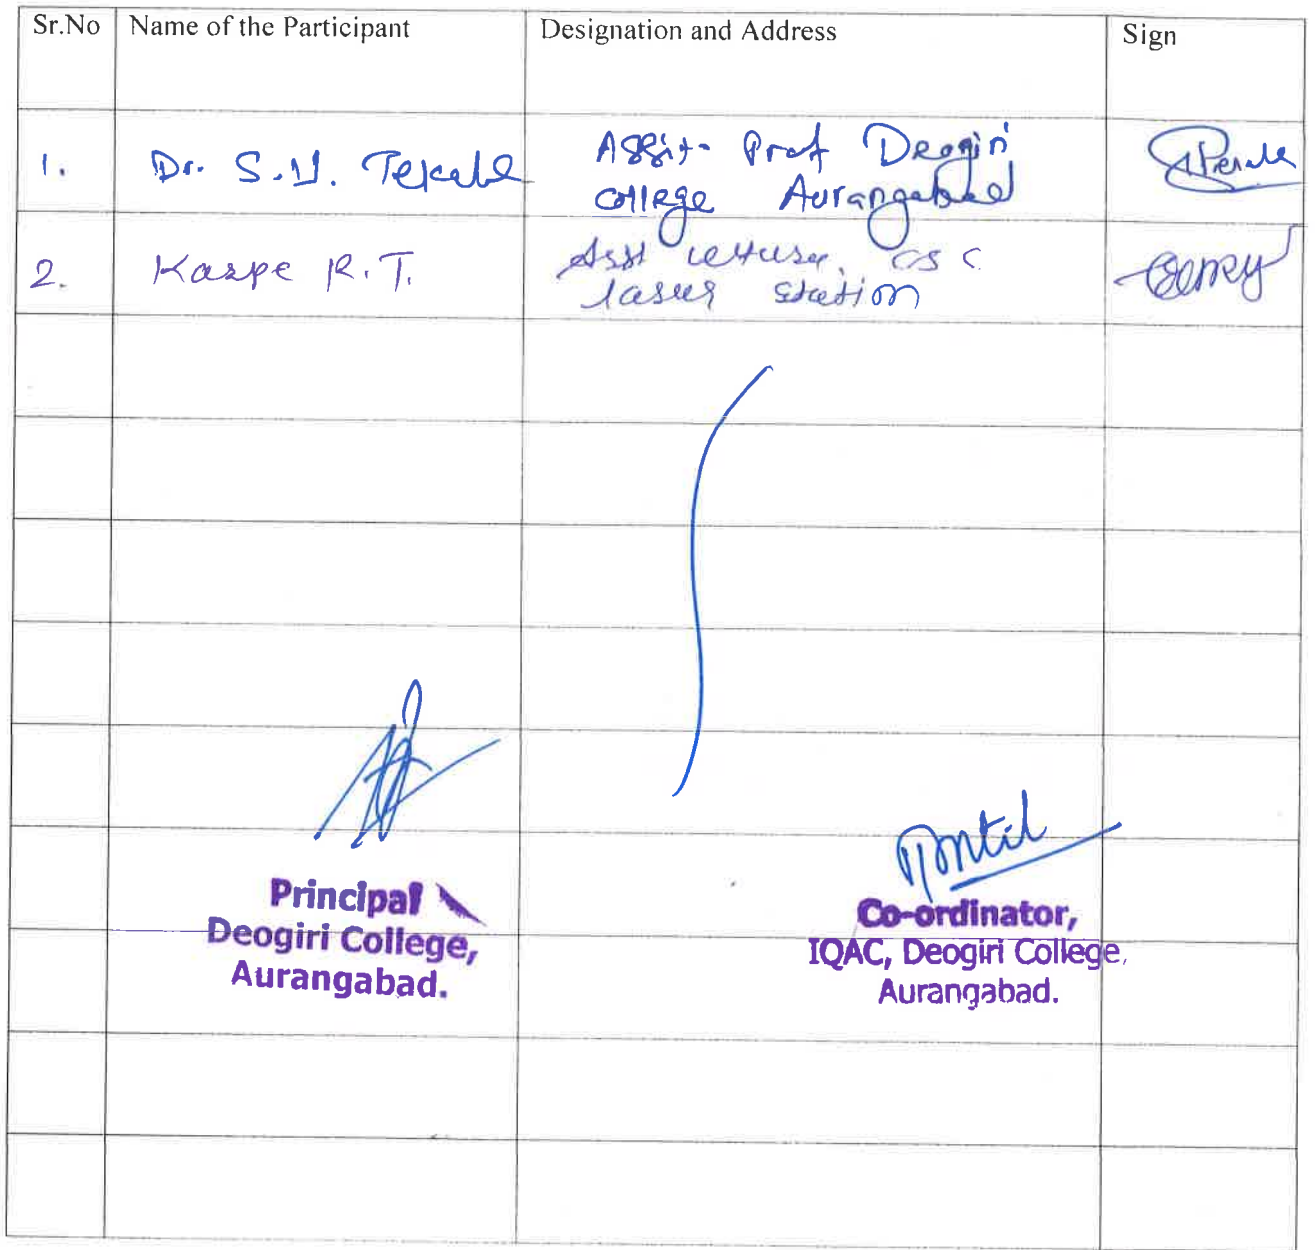 Sr.No Name of the Participant Designation and Address Sign
1. Dr. S.U. Tekale Assit. Prof Deogiri
college Aurangabad
2. Karpe R.T. Asst CSC
lasur station
Principal
Deogiri College,
Aurangabad.
Co-ordinator,
IQAC, Deogiri College,
Aurangabad.